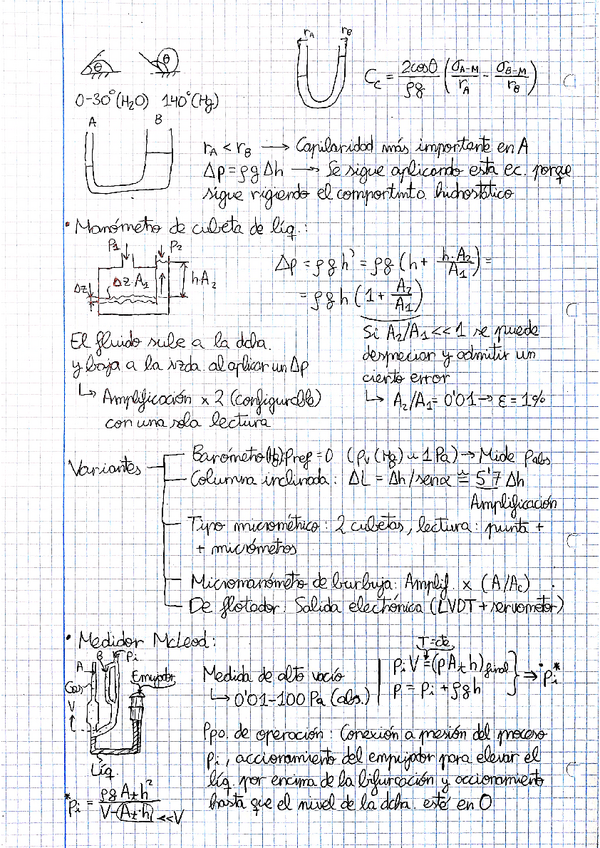 r_A r_B
θ θ
C_c = 2cosθ/ρg (σ_A-M/r_A - σ_B-M/r_B)
0-30°(H₂O) 140°(Hg)
A B
r_A < r_B → Capilaridad más importante en A
Δp = ρgΔh → Se sigue aplicando esta ec. porque
sigue rigiendo el comportmto. hidrostático
• Manómetro de cubeta de líq.:
P₁ P₂
Δz Δz·A₁ hA₂
Δp = ρgh' = ρg (h + h·A₂/A₁) =
= ρgh (1 + A₂/A₁)
El fluido sube a la dcha.
y baja a la izda. al aplicar un Δp
↳ Amplificación x 2 (configurable)
con una sola lectura
Si A₂/A₁ << 1 se puede
despreciar y admitir un
cierto error
↳ A₂/A₁ = 0'01 → ε = 1%
Variantes
Barómetro (Hg): Pref = 0 (pᵥ (Hg) ~ 1 Pa) → Mide Pabs
Columna inclinada: ΔL = Δh/senα ≅ 5'7 Δh
Amplificación
Tipo micrométrico: 2 cubetas, lectura: punta +
+ micrómetros
Micromanómetro de burbuja: Amplif. x (A/Ac)
De flotador: Salida electrónica (LVDT + servomotor)
• Medidor McLeod:
A B Pi
Gas
V
Empujador
Líq.
Medida de alto vacío
↳ 0'01-100 Pa (abs.)
T = cte
pᵢV = (pAₜh)final
p = pᵢ + ρgh
⇒ *pᵢ*
Ppo. de operación: Conexión a presión del proceso
Pi, accionamiento del empujador para elevar el
líq. por encima de la bifurcación y accionamiento
hasta que el nivel de la dcha. esté en 0
*pᵢ = ρgAₜh²/V-(Aₜ·h) <<V